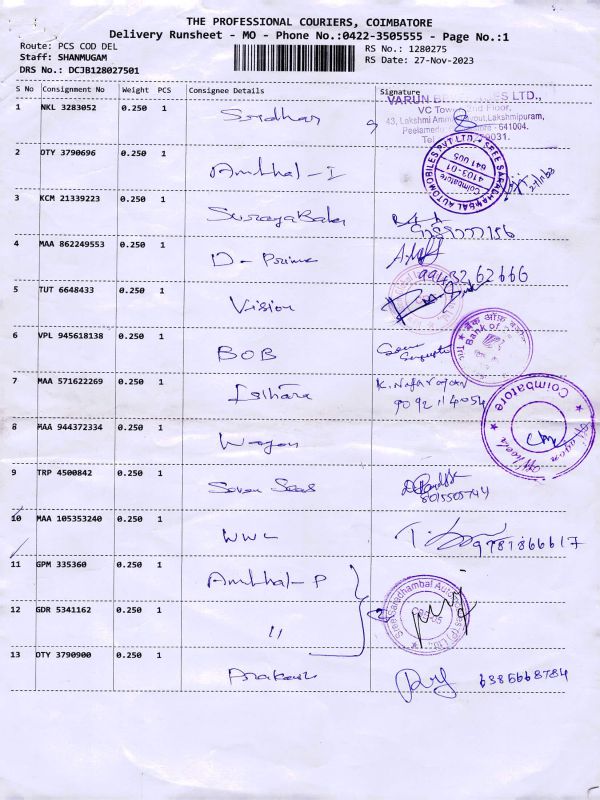 THE PROFESSIONAL COURIERS, COIMBATORE
Delivery Runsheet - MO - Phone No.:0422-3505555 - Page No.:1
Route: PCS COD DEL
Staff: SHANMUGAM
DRS No.: DCJB128027501
RS No.: 1280275
RS Date: 27-Nov-2023
S No Consignment No Weight PCS Consignee Details Signature
1 NKL 3283052 0.250 1 Sridhar
VARUN
VC Tower, 2nd Floor,
43, Lakshmi Layout, Lakshmipuram,
Peelamedu - 641004.
2 DTY 3790696 0.250 1 Ambhal-I
SREE SARADHAMBAL AUTOMOBILES PVT LTD.
4103-01
Coimbatore
641 005
3 KCM 21339223 0.250 1 SuryaBala
4 MAA 862249553 0.250 1 D-Prime
99432 62666
5 TUT 6648433 0.250 1 Vision
6 VPL 945618138 0.250 1 BOB
Bank of
7 MAA 571622269 0.250 1 Isthara K. Nagarajan
9092114054
Coimbatore
8 MAA 944372334 0.250 1 Wagon
9 TRP 4500842 0.250 1 Seven Seas
10 MAA 105353240 0.250 1 WWC
9787866617
11 GPM 335360 0.250 1 Ambhal-P
12 GDR 5341162 0.250 1 "
Sree Saradhambal Automobiles (P) Ltd.
13 DTY 3790900 0.250 1 Prakash
6385668784